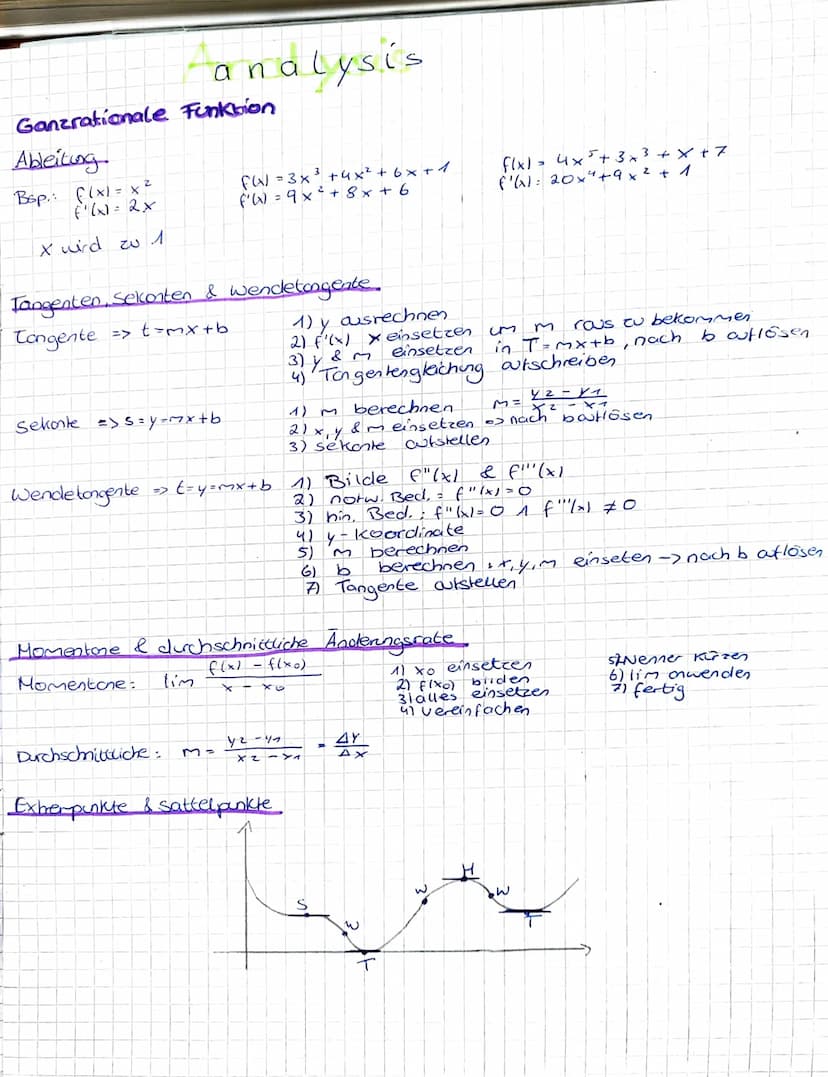 Analysis
Ganzrationale Funktion
Ableitung
Bsp.: f(x) = x²
f'(x) = 2x
f(x) = 3x³ + 4x² + 6x + 1
f'(x) = 9x² + 8x + 6
f(x) = 4x⁵ + 3x³ + x + 7
f'(x) = 20x⁴ + 9x² + 1
x wird zu 1
Tangenten, Sekanten & Wendetangente
Tangente => t=mx+b
1) y ausrechnen
2) f'(x) x einsetzen um m raus zu bekommen
3) y & m einsetzen in T=mx+b, nach b auflösen
4) Tangentengleichung aufschreiben
Sekante => s=y=mx+b
1) m berechnen m = y2 - y1 / x2 - x1
2) x, y & m einsetzen => nach b auflösen
3) Sekante aufstellen
Wendetangente => t=y=mx+b
1) Bilde f''(x) & f'''(x)
2) notw. Bed. = f''(x) = 0
3) hin. Bed.: f''(x) = 0 ∧ f'''(x) ≠ 0
4) y-Koordinate
5) m berechnen
6) b berechnen, x, y, m einseten -> nach b auflösen
7) Tangente aufstellen
Momentane & durchschnittliche Änderungsrate
Momentane: lim f(x) - f(x0) / x - x0
1) x0 einsetzen
2) f(x0) bilden
3) alles einsetzen
4) vereinfachen
5) Nenner kürzen
6) lim anwenden
7) fertig
Durchschnittliche: m = y2 - y1 / x2 - x1 = ΔY / Δx
Extrempunkte & Sattelpunkte
S
W
T
W
H
W
T